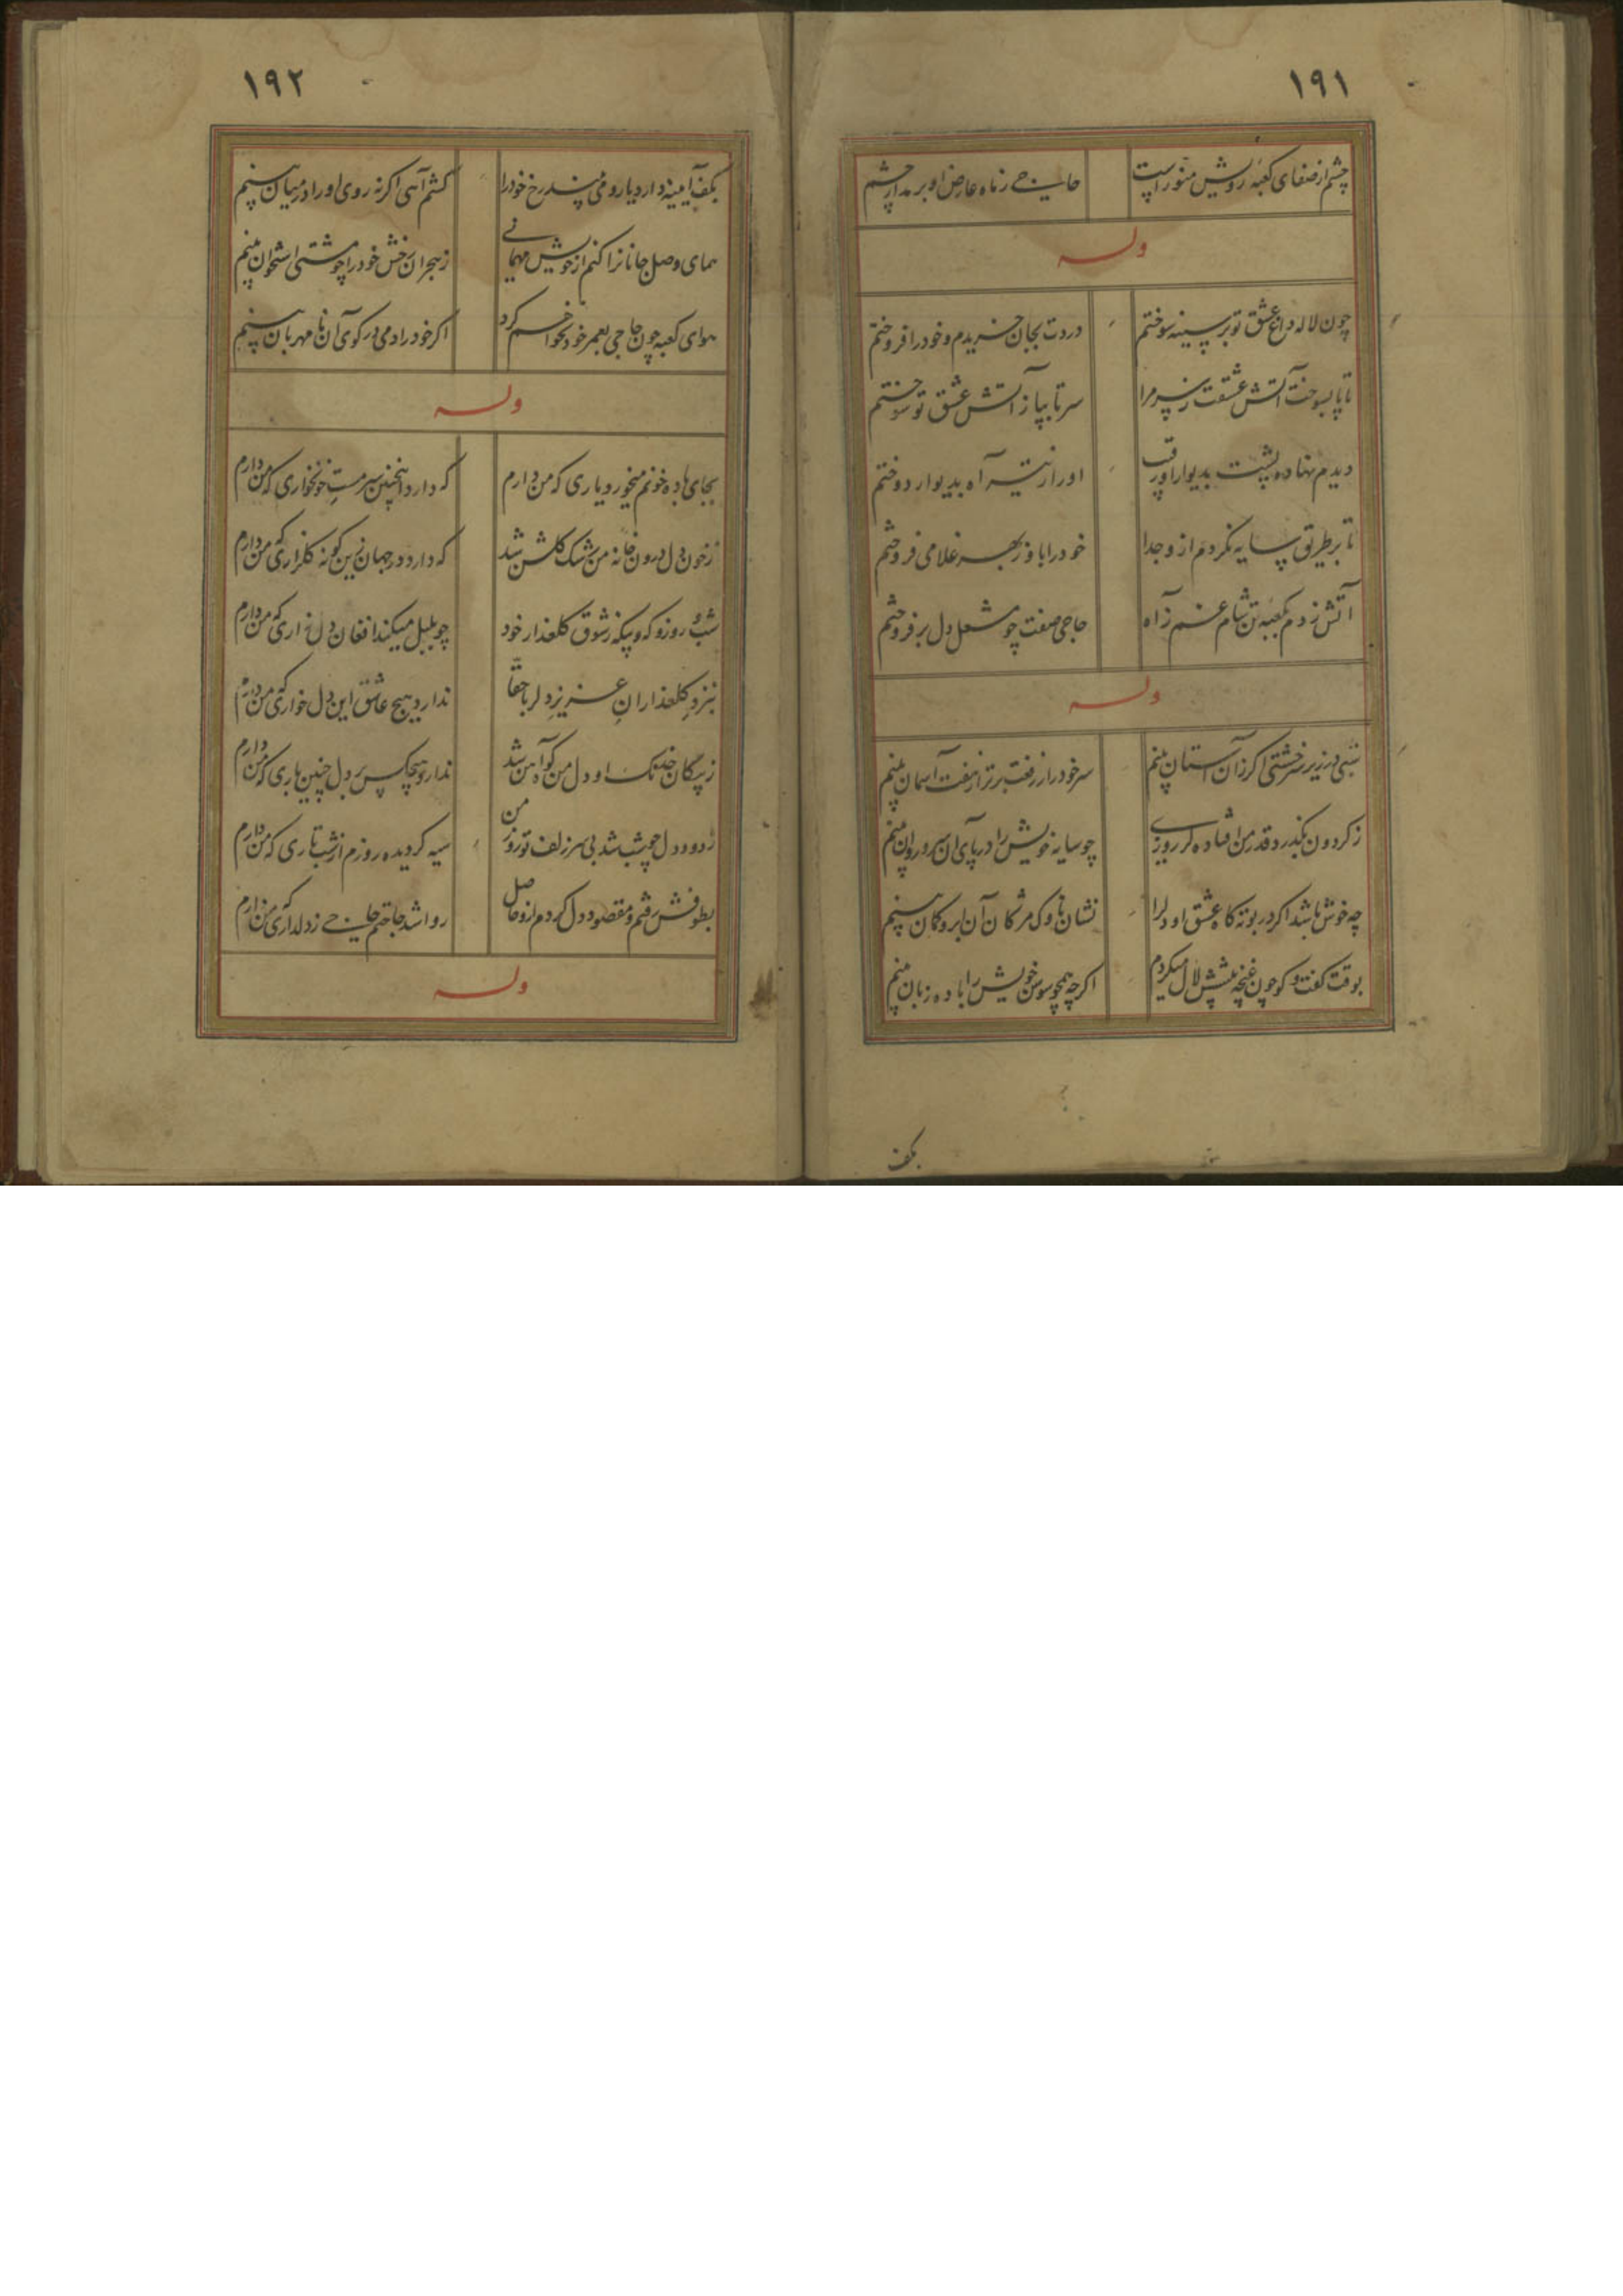 ۱۹۱
چشم از صفای کعبه رویش منور است
حاجی ز ماه عارض او بر مدار چشم
وله
چون لاله داغ عشق تو بر سینه سوختم
دردت بجان خریدم و خود را فروختم
تا پا بسوخت آتش عشقت ز سر مرا
سر تا بپا ز آتش عشق تو سوختم
دیدم نهاده پشت بدیوار او رقیب
او را ز تیر آه بدیوار دوختم
تا بر طریق سایه نگردم ازو جدا
خود را باو ز بهر غلامی فروختم
آتش زدم بکعبه تن شام غم ز آه
حاجی صفت چو مشعل دل برفروختم
وله
شبی در زیر سر خشتی گر زان آستان بینم
سر خود را ز رفعت برتر از هفت آسمان بینم
ز گردون بگذرد قدر من افتاده گر روزی
چو سایه خویش را در پای آن سرو روان بینم
چه خوش باشد اگر در بوته گاه عشق او دلرا
نشان ناوک مژگان آن ابرو کمان بینم
بوقت گفت و گو چون غنچه پیشش لال میگردم
اگر چه همچو سوسن خویش را با ده زبان بینم
بکف
۱۹۲
بکف آیینه دارد یار و می بیند رخ خود را
کشم آهی اگر نه روی او را در میان بینم
همای وصل جانانرا کنم از خویش مهمانی
ز هجران رخش خود را چو مشتی استخوان بینم
هوای کعبه چون حاجی بعمر خود نخواهم کرد
اگر خود را دمی در کوی آن نامهربان بینم
وله
بجای باده خونم میخورد یاری که من دارم
که دارد اینچنین سرمست خونخواری که من دارم
ز خون دل درون خانه من رشک گلشن شد
که دارد در جهان زین گونه گلزاری که من دارم
شب و روز و که و بیگه ز شوق گلعذار خود
چو بلبل میکند افغان دل زاری که من دارم
بنزد گلعذاران عزیز دلربا حقا
ندارد هیچ عاشق این دل خواری که من دارم
ز پیکان خدنگ او دل من کوه آهن شد
ندارد هیچکس بر دل چنین باری که من دارم
ز دود دل چو شب شد بی سر زلف تو روز من
سیه گردیده روزم از شب تاری که من دارم
بطوفش رفتم و مقصود دل کردم ازو حاصل
روا شد حاجتم حاجی ز دلداری که من دارم
وله